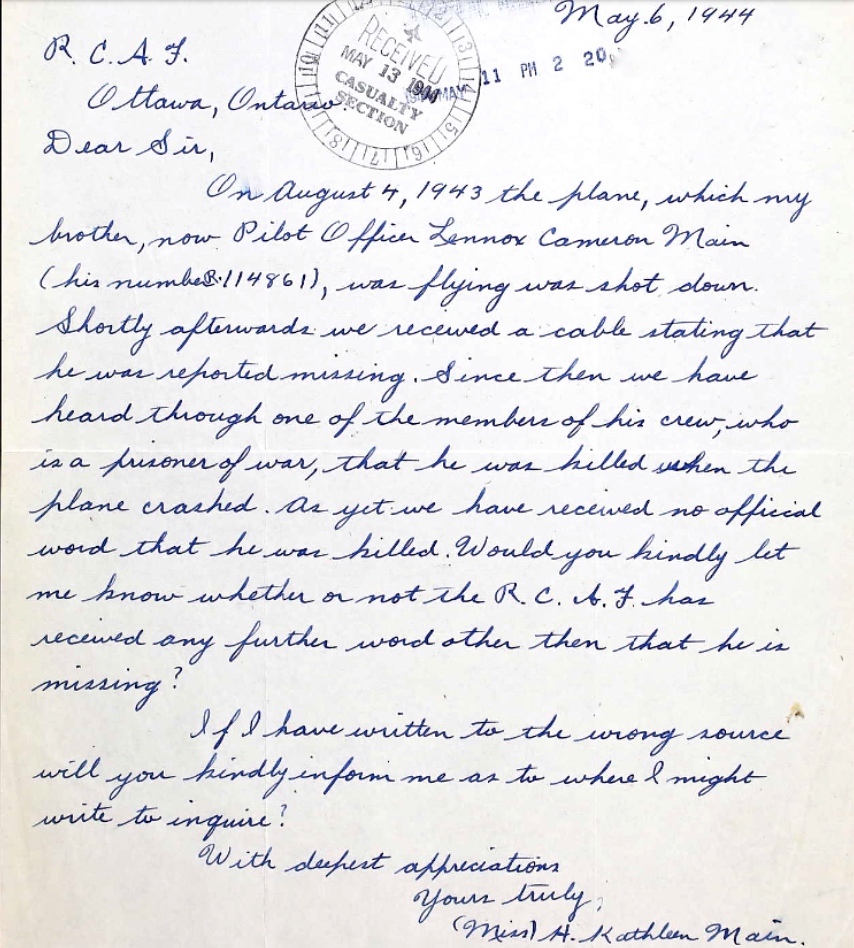 May 6, 1944
R. C. A. F.
Ottawa, Ontario.
RECEIVED
MAY 13 1944
CASUALTY
SECTION
MAY 11 PM 2 20
Dear Sir,
On August 4, 1943 the plane, which my
brother, now Pilot Officer Lennox Cameron Main
(his number R.114861), was flying was shot down.
Shortly afterwards we received a cable stating that
he was reported missing. Since then we have
heard through one of the members of his crew, who
is a prisoner of war, that he was killed when the
plane crashed. As yet we have received no official
word that he was killed. Would you kindly let
me know whether or not the R. C. A. F. has
received any further word other then that he is
missing?
If I have written to the wrong source
will you kindly inform me as to where I might
write to inquire?
With deepest appreciations
Yours truly,
(Miss) H. Kathleen Main.